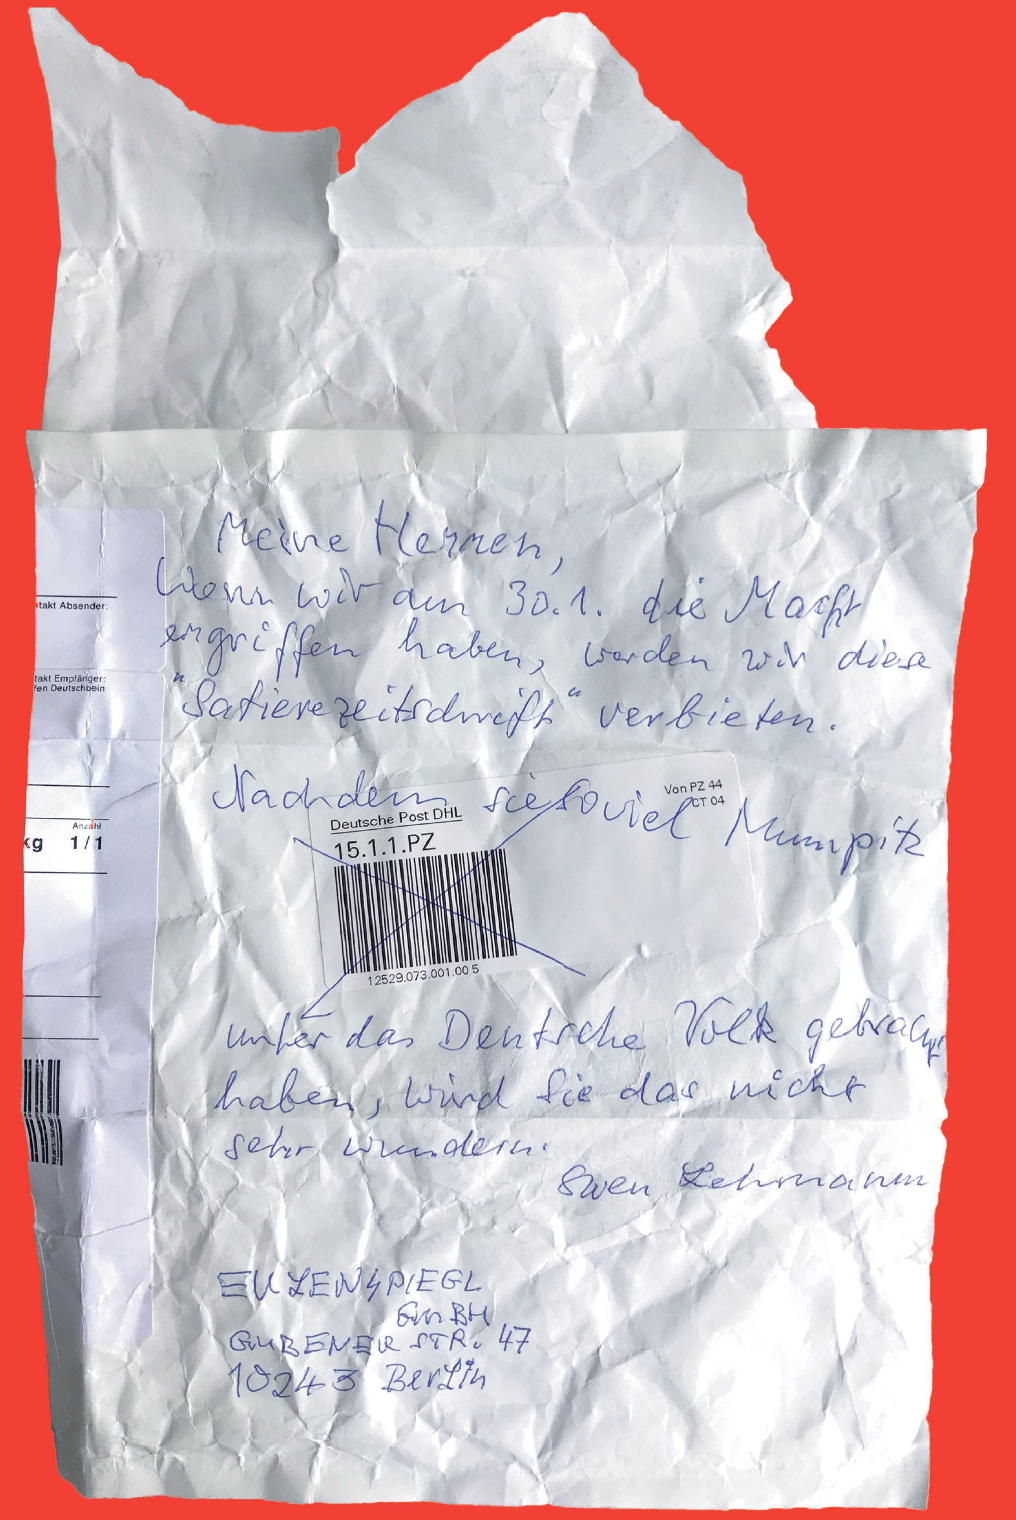 Meine Herren,
Wenn wir am 30.1. die Macht
ergriffen haben, werden wir diese
"Satierezeitschrift" verbieten.
Nachdem sie soviel Mumpitz
unter das Deutsche Volk gebracht
haben, wird Sie das nicht
sehr wundern.
Swen Lehmann
EULENSPIEGL
GmBH
GUBENER STR. 47
10243 BerLin
ntakt Absender:
ntakt Empfänger:
fen Deutschbein
Anzahl
kg 1/1
Deutsche Post DHL
15.1.1.PZ
Von PZ 44
CT 04
12529.073.001.00 5